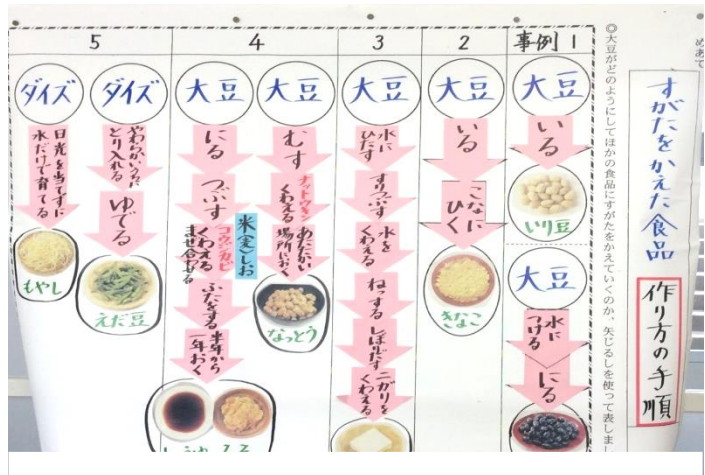 めあて
すがたをかえた食品
作り方の手順
◎大豆がどのようにしてほかの食品にすがたをかえていくのか、矢じるしを使って表しまし
事例1
大豆
いる
いり豆
大豆
水に
つける
にる
2
大豆
いる
こなに
ひく
きなこ
3
大豆
水に
ひたす
すりつぶす
水を
くわえる
ねっする
しぼりだす
ニガリを
くわえる
4
大豆
むす
ナットウキン
くわえる
あたたかい
場所におく
なっとう
大豆
にる
つぶす
米(麦)しお
コウジカビ
くわえる
まぜ合わせる
ふたをする
半年から
一年おく
5
ダイズ
やわらかいうちに
とり入れる
ゆでる
えだ豆
ダイズ
日光を当てずに
水だけで育てる
もやし